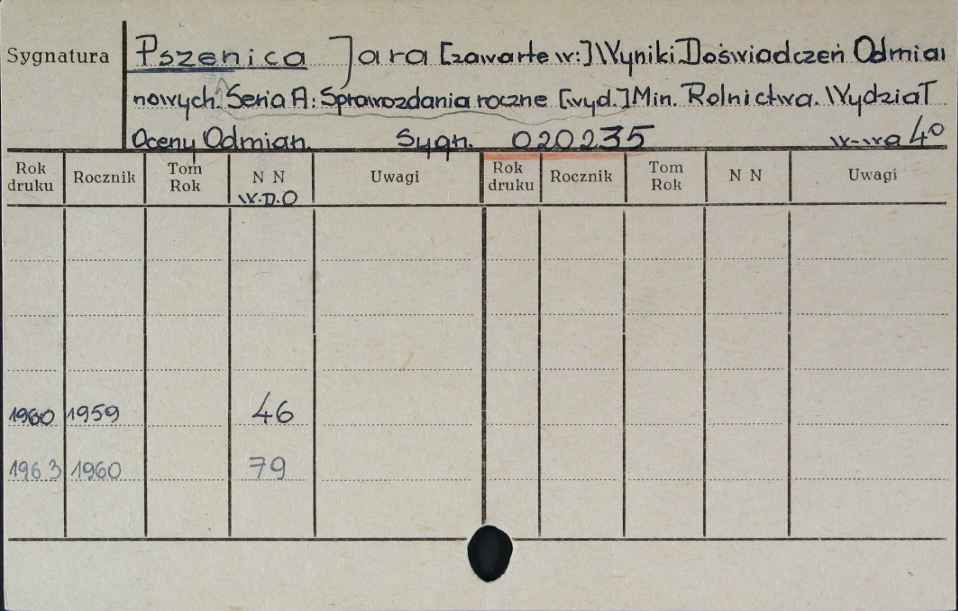 Sygnatura Pszenica Jara [zawarte w:] Wyniki Doświadczeń Odmia
nowych. Seria A: Sprawozdania roczne [wyd.] Min. Rolnictwa. Wydział
Oceny Odmian. Sygn. 020235 W-wa 4°
Rok druku Rocznik Tom Rok N N W.D.O Uwagi Rok druku Rocznik Tom Rok N N Uwagi
1960 1959 46
1963 1960 79